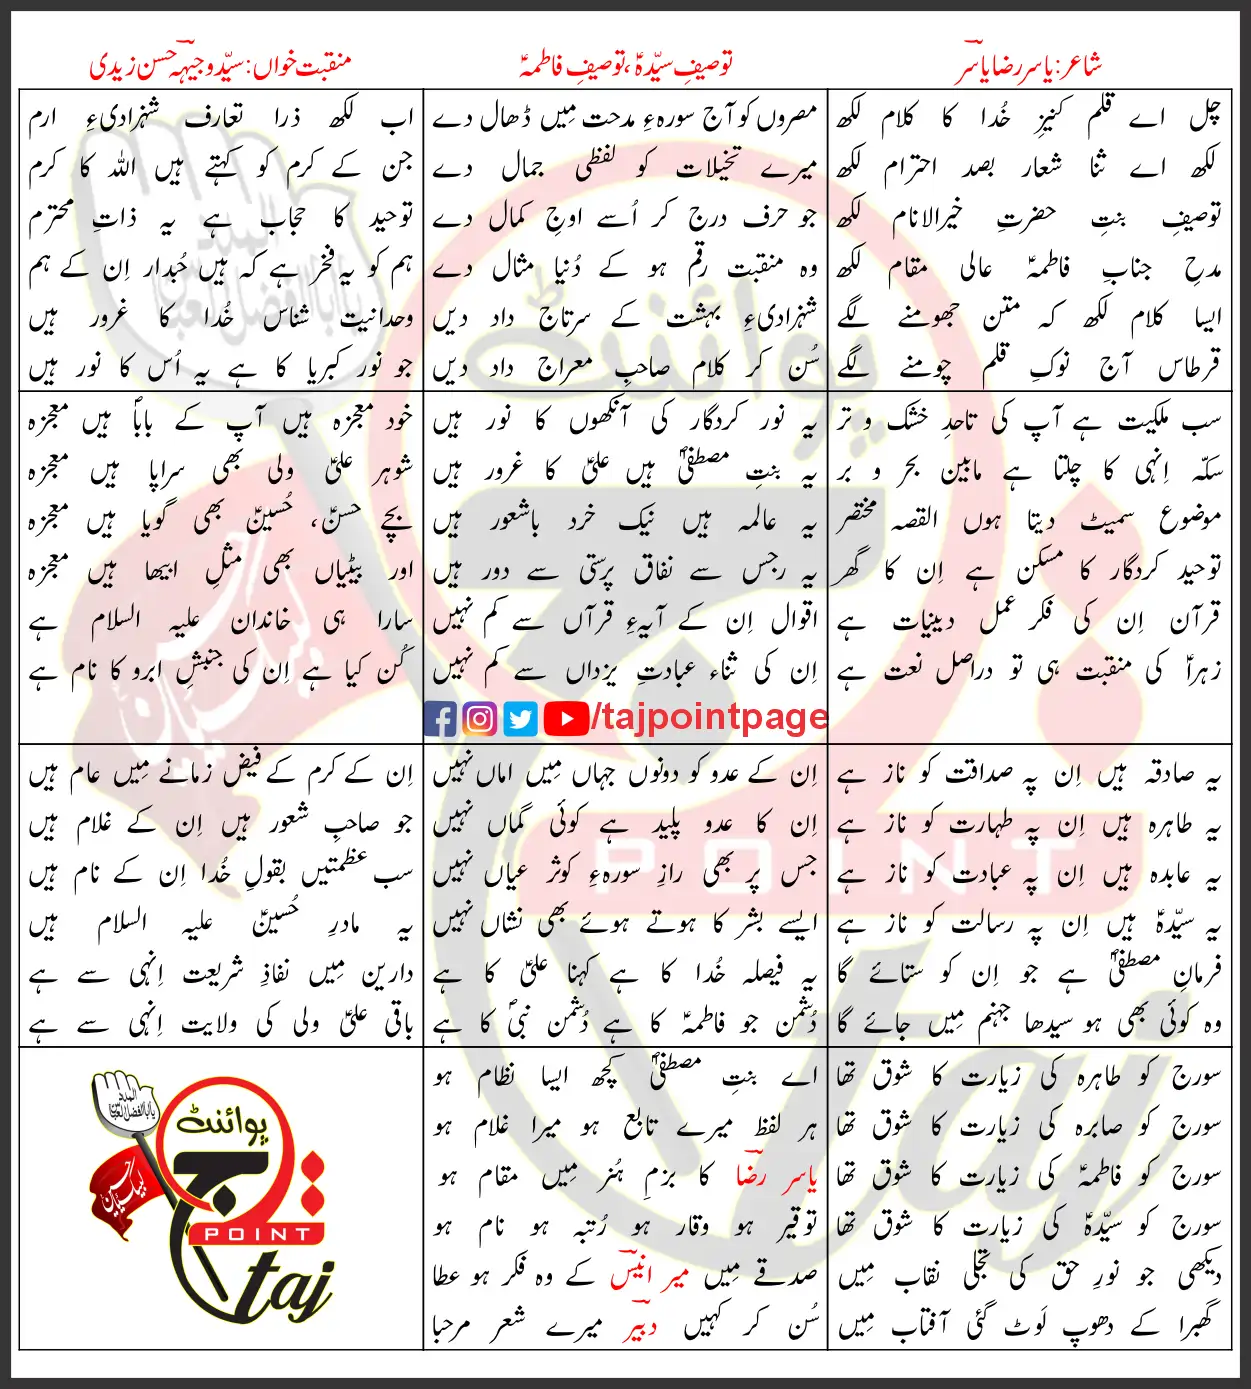 شاعر: یاسر رضا یاسر
توصیفِ سیّدہؑ، توصیفِ فاطمہؑ
منقبت خواں: سیّد وجیہہ حسن زیدی
چل اے قلم کنیزِ خُدا کا کلام لکھ
لکھ اے ثنا شعار بصد احترام لکھ
توصیفِ بنتِ حضرتِ خیرالانام لکھ
مدحِ جنابِ فاطمہؑ عالی مقام لکھ
ایسا کلام لکھ کہ متن جھومنے لگے
قرطاس آج نوکِ قلم چومنے لگے
مصروں کو آج سورہءِ مدحت مِیں ڈھال دے
میرے تخیلات کو لفظی جمال دے
جو حرف درج کر اُسے اوجِ کمال دے
وہ منقبت رقم ہو کے دُنیا مثال دے
شہزادیءِ بہشت کے سرتاج داد دیں
سُن کر کلام صاحبِ معراج داد دیں
اب لکھ ذرا تعارفِ شہزادیءِ ارم
جن کے کرم کو کہتے ہیں اللہ کا کرم
توحید کا حجاب ہے یہ ذاتِ محترم
ہم کو یہ فخر ہے کہ ہیں حُبدار اِن کے ہم
وحدانیت شناس خُدا کا غرور ہیں
جو نور کبریا کا ہے یہ اُس کا نور ہیں
سب ملکیت ہے آپ کی تاحدِ خشک و تر
سکّہ اِنہی کا چلتا ہے مابین بحر و بر
موضوع سمیٹ دیتا ہوں القصہ مختصر
توحید کردگار کا مسکن ہے اِن کا گھر
قرآن اِن کی فکر عمل دینیات ہے
زہراؑ کی منقبت ہی تو دراصل نعت ہے
یہ نور کردگار کی آنکھوں کا نور ہیں
یہ بنتِ مصطفیٰؐ ہیں علیؑ کا غرور ہیں
یہ عالمہ ہیں نیک خرد باشعور ہیں
یہ رجس سے نفاق پرستی سے دور ہیں
اقوال اِن کے آیہءِ قرآں سے کم نہیں
اِن کی ثناء عبادتِ یزداں سے کم نہیں
خود معجزہ ہیں آپ کے باباؐ ہیں معجزہ
شوہر علیؑ ولی بھی سراپا ہیں معجزہ
بچے حسنؑ، حُسینؑ بھی گویا ہیں معجزہ
اور بیٹیاں بھی مثلِ ابیھا ہیں معجزہ
سارا ہی خاندان علیہ السلام ہے
کُن کیا ہے اِن کی جنبشِ ابرو کا نام ہے
/tajpointpage
یہ صادقہ ہیں اِن پہ صداقت کو ناز ہے
یہ طاہرہ ہیں اِن پہ طہارت کو ناز ہے
یہ عابدہ ہیں اِن پہ عبادت کو ناز ہے
یہ سیّدہؑ ہیں اِن پہ رسالت کو ناز ہے
فرمانِ مصطفیٰؐ ہے جو اِن کو ستائے گا
وہ کوئی بھی ہو سیدھا جہنم مِیں جائے گا
اِن کے عدو کو دونوں جہاں مِیں اماں نہیں
اِن کا عدو پلید ہے کوئی گماں نہیں
جس پر بھی رازِ سورہءِ کوثر عیاں نہیں
ایسے بشر کا ہوتے ہوئے بھی نشاں نہیں
یہ فیصلہ خُدا کا ہے کہنا علیؑ کا ہے
دُشمن جو فاطمہؑ کا ہے دُشمن نبیؐ کا ہے
اِن کے کرم کے فیض زمانے مِیں عام ہیں
جو صاحبِ شعور ہیں اِن کے غلام ہیں
سب عظمتیں بقولِ خُدا اِن کے نام ہیں
یہ مادرِ حُسینؑ علیہ السلام ہیں
دارین مِیں نفاذِ شریعت اِنہی سے ہے
باقی علیؑ ولی کی ولایت اِنہی سے ہے
سورج کو طاہرہ کی زیارت کا شوق تھا
سورج کو صابرہ کی زیارت کا شوق تھا
سورج کو فاطمہؑ کی زیارت کا شوق تھا
سورج کو سیّدہؑ کی زیارت کا شوق تھا
دیکھی جو نورِ حق کی تجلی نقاب مِیں
گھبرا کے دھوپ لَوٹ گئی آفتاب مِیں
اے بنتِ مصطفیٰؐ کچھ ایسا نظام ہو
ہر لفظ میرے تابع ہو میرا غلام ہو
یاسر رضا کا بزمِ ہُنر مِیں مقام ہو
توقیر ہو وقار ہو رُتبہ ہو نام ہو
صدقے مِیں میر انیس کے وہ فکر ہو عطا
سُن کر کہیں دبیر میرے شعر مرحبا
المدد
یا ابالفضل العباس
لبیک یا حسین
تاج پوائنٹ
POINT
taj